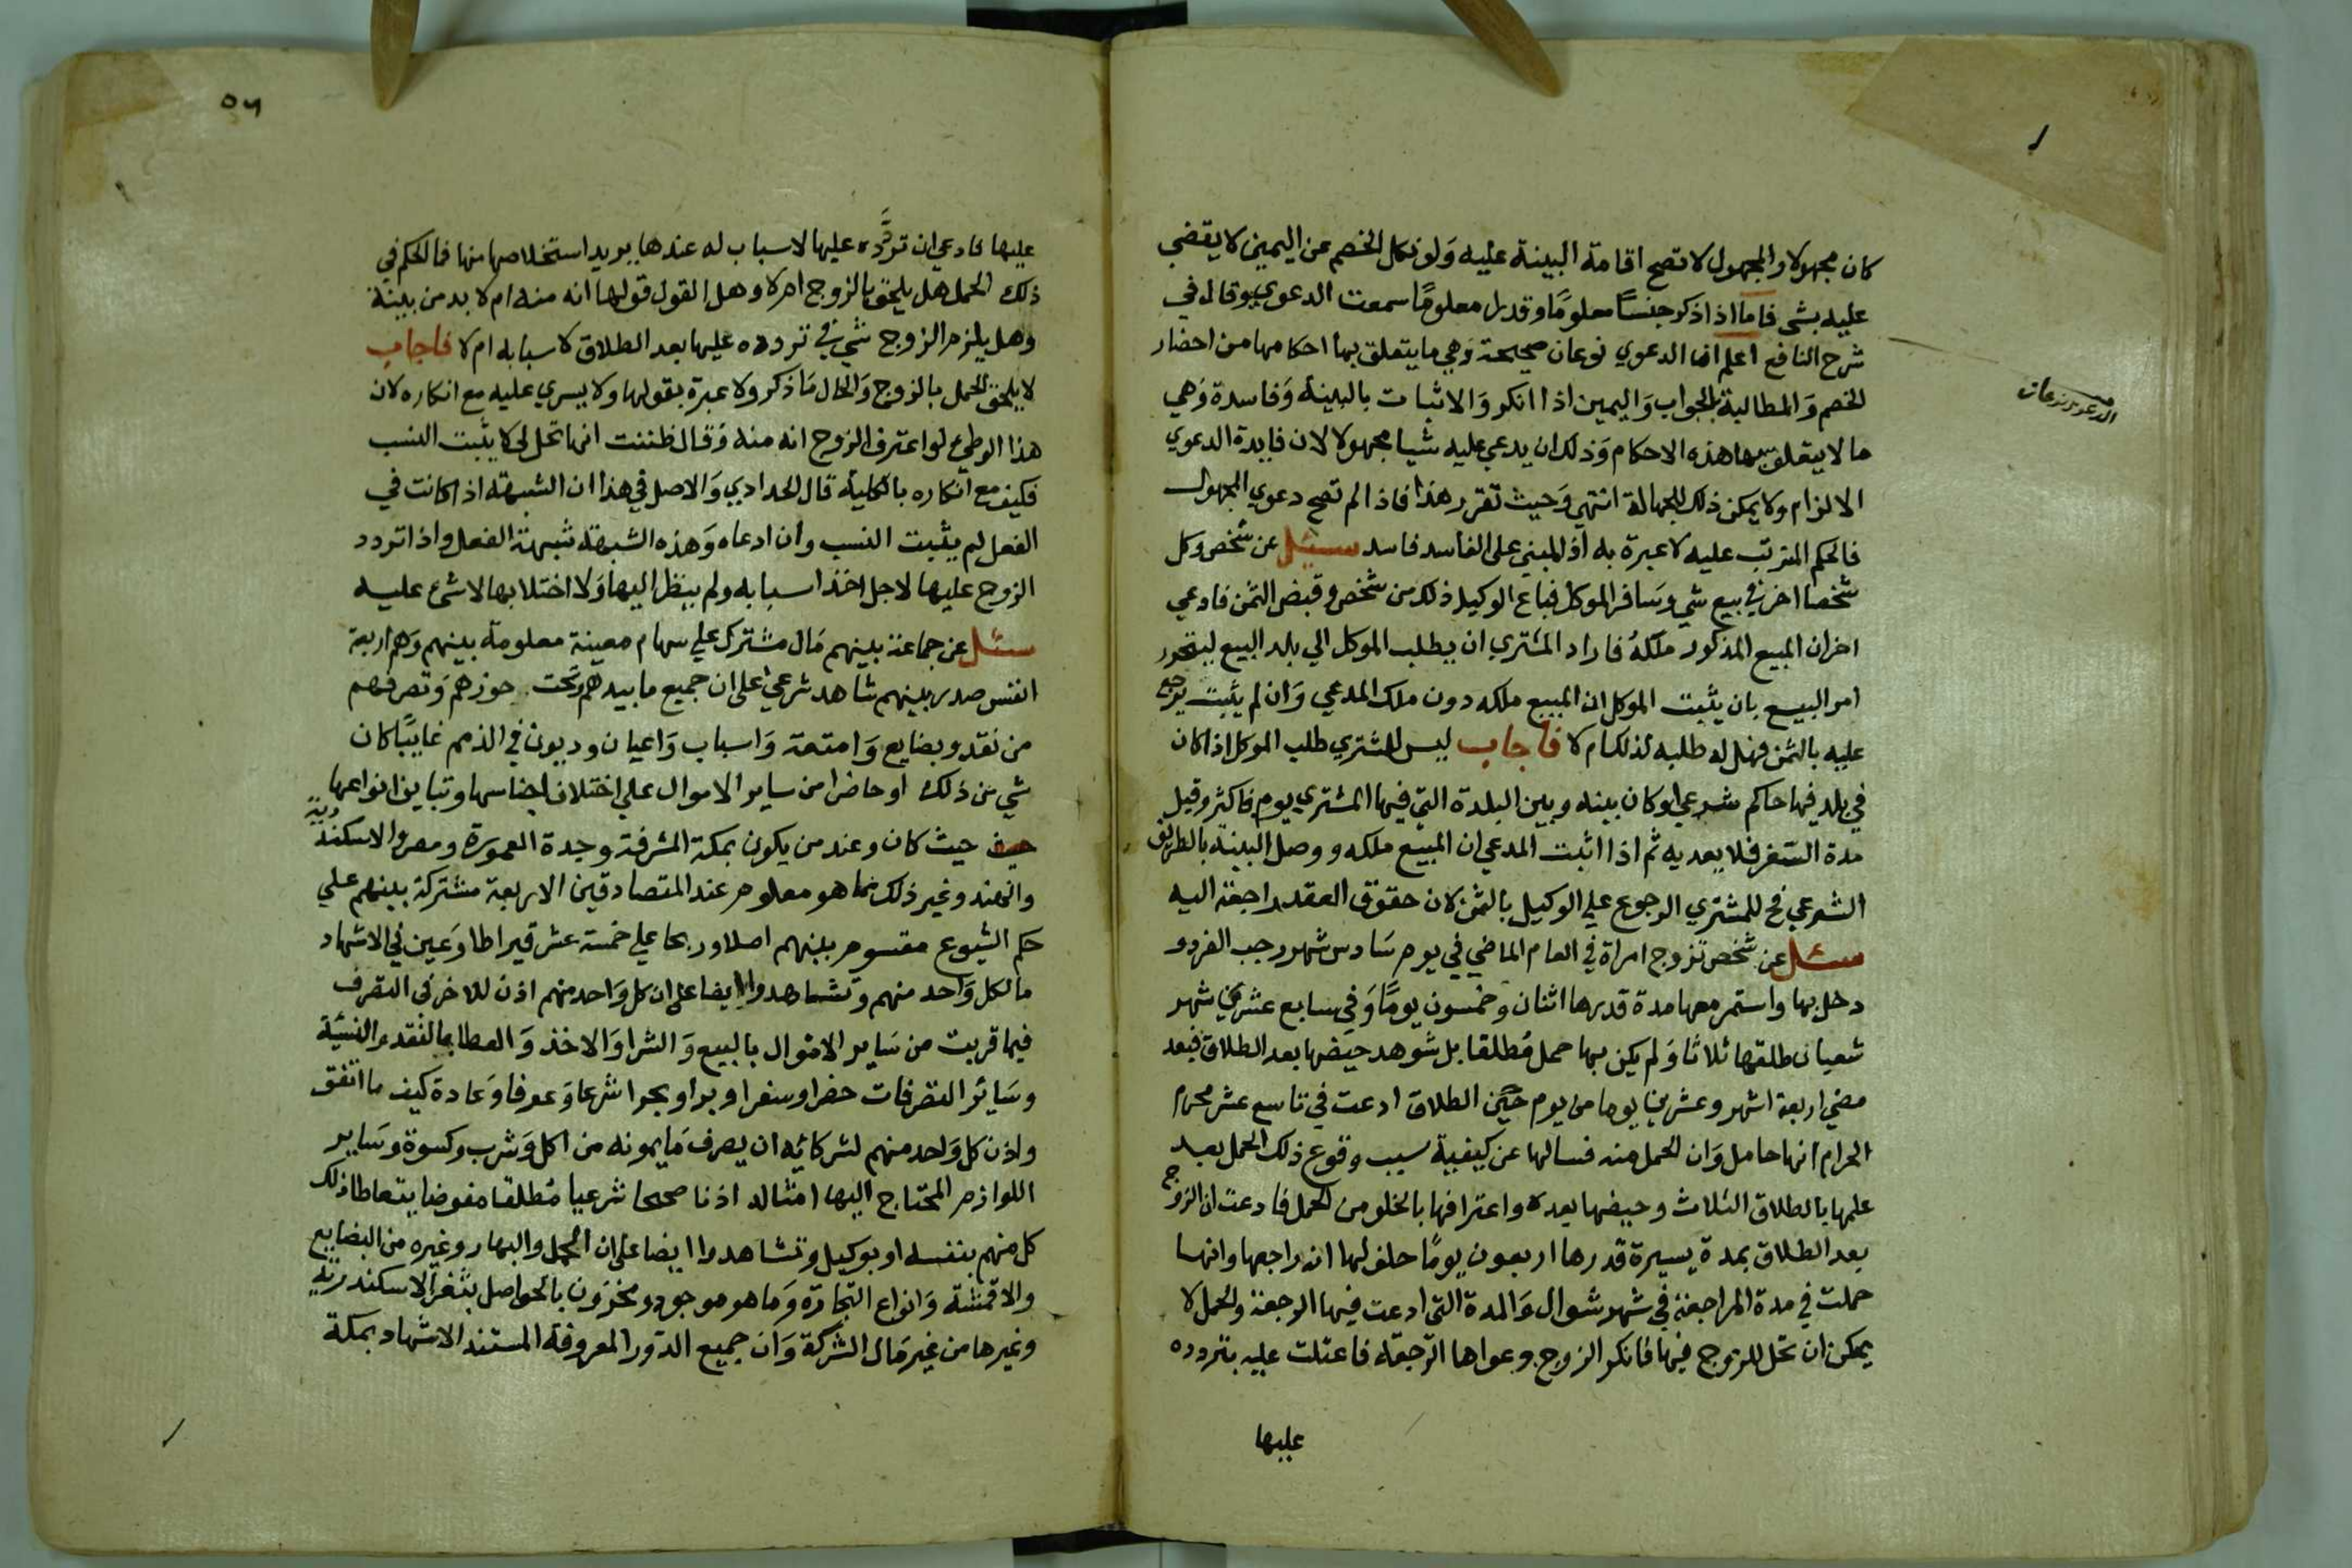 كان مجهولا والمجهول لا تصح اقامة البينة عليه وَلو نكل الخصم عن اليمين لا يقضي
عليه بشي فاما اذا ذكر جنسًا معلومًا وقدرا معلومًا سمعت الدعوي وقال في
شرح النافع اعلم ان الدعوي نوعان صحيحة وَهي ما يتعلق بها احكامها من احضار
الخصم وَالمطالبة بالجواب وَاليمين اذا انكر وَالاثبات بالبينة وَفاسدة وَهي
ما لا يتعلق بها هذه الاحكام وَذلك ان يدعي عليه شيا مجهولا لان فايدة الدعوي
الالزام ولا يمكن ذلك بالجهالة انتهي وَحيث تقرر هذا فاذا لم تصح دعوي المجهول
فالحكم المترتب عليه لا عبرة به اذ المبني علي الفاسد فاسد سئل عن شخص وكل
شخصا اخر في بيع شي وسَافر الموكل فباع الوكيل ذلك من شخص وقبض الثمن فادعي
اخر ان المبيع المذكور ملكهُ فاراد المشتري ان يطلب الموكل الي بلد البيع ليتحرر
امر البيع بان يثبت الموكل ان المبيع ملكه دون ملك المدعي وَان لم يثبت يرجع
عليه بالثمن فهل له طلبه لذلك ام لا فاجاب ليس للمشتري طلب الموكل اذا كان
في بلد فيها حاكم شرعي لو كان بينه وبين البلدة التي فيها المشتري يوم فاكثر وقيل
مدة السفر فلا يعديه ثم اذا اثبت المدعي ان المبيع ملكه ووصل البينة بالطريق
الشرعي فح للمشتري الرجوع علي الوكيل بالثمن لان حقوق العقد راجعة اليه
سئل عن شخص تزوج امراة في العام الماضي في يوم سَادس شهر رجب الفرد و
دخل بها واستمر معها مدة قدرها اثنان وخمسون يومًا وَفي سابع عشرين شهر
شعبان طلقها ثلاثا وَلم يكن بها حمل مُطلقا بل شوهد حيضها بعد الطلاق فبعد
مضي اربعة اشهر وعشرين يوما من يوم حين الطلاق ادعت في تاسع عشر محرم
الحرام انها حامل وَان الحمل منه فسالها عن كيفية سبب وقوع ذلك الحمل بعد
علمها بالطلاق الثلاث وحيضها بعده واعترافها بالخلو من الحمل فادعت ان الزوج
بعد الطلاق بمدة يسيرة قدرها اربعون يومًا حلف لها انه راجعها وانها
حملت في مدة المراجعة في شهر شوال وَالمدة التي ادعت فيها الرجعة والحمل لا
يمكن ان تحل للزوج فيها فانكر الزوج دعواها الرجعة فاعتلت عليه بتردده
عليها
٥٦
عليها فادعي ان تردَّده عليها لاسباب له عندها يريد استخلاصها منها فما الحكم في
ذلك الحمل هل يلحق بالزوج ام لا وهل القول قولها انه منه ام لا بد من بينة
وهل يلزم الزوج شي في تردده عليها بعد الطلاق لاسبابه ام لا فاجاب
لا يلحق الحمل بالزوج وَالحال مَا ذكر ولا عبرة بقولها ولا يسري عليه مع انكاره لان
هذا الوطئ لو اعترف الزوج انه منه وَقال ظننت انها تحل لي لا يثبت النسب
فكيف مع انكاره بالكلية قال الحدادي وَالاصل في هذا ان الشبهة اذا كانت في
الفعل لم يثبت النسب وان ادعاه وَهذه الشبهة شبهة الفعل واذا تردد
الزوج عليها لاجل اخذ اسبابه ولم ينظر اليها وَلا اختلا بها لا شئ عليه
سئل عن جماعة بينهم مَال مشترك علي سهام معينة معلومة بينهم وَهم اربعة
انفس صدر بينهم شاهد شرعي علي ان جميع ما بيدهم وتحت حوزهم وَتصرفهم
من نقد وبضايع وَامتعة وَاسباب وَاعيان وديون في الذمم غايبًا كان
شي من ذلك او حاضرا من ساير الاموال علي اختلاف اجناسها وتباين انواعها
حيث كان وعند من يكون بمكة المشرفة وجدة المعمورة ومصر والاسكندرية
والهند وغير ذلك مما هو معلوم عند المتصادقين الاربعة مشتركة بينهم علي
حكم الشيوع مقسوم بينهم اصلا وربحا علي خمسة عشر قيراطا وَعين في الاشهاد
ما لكل وَاحد منهم وتشاهدوا ايضا علي ان كل وَاحد منهم اذن للاخر في التصرف
فيما قربت من سَاير الاموال بالبيع وَالشرا وَالاخذ وَالعطا بالنقد والنسيئة
وسَائر التصرفات حضرا وسفرا وبرا وبحرا شرعا وَعرفا وَعادة كيف ما اتفق
واذن كل وَاحد منهم لشركائه ان يصرف مَا يمونه من اكل وَشرب وكسوة وسَاير
اللوازم المحتاج اليها امثاله اذنا صحيحا شرعيا مُطلقا مفوضا يتعاطا ذلك
كل منهم بنفسه او بوكيل وتشاهدوا ايضا علي ان الحمل والبهار وغيره من البضايع
والاقمشة وَانواع التجارة وَما هو موجود ومخزون بالحواصل بثغر الاسكندرية
وغيرها من غير مَال الشركة وَان جميع الدور المعروفة المستند الاشهاد بمكة